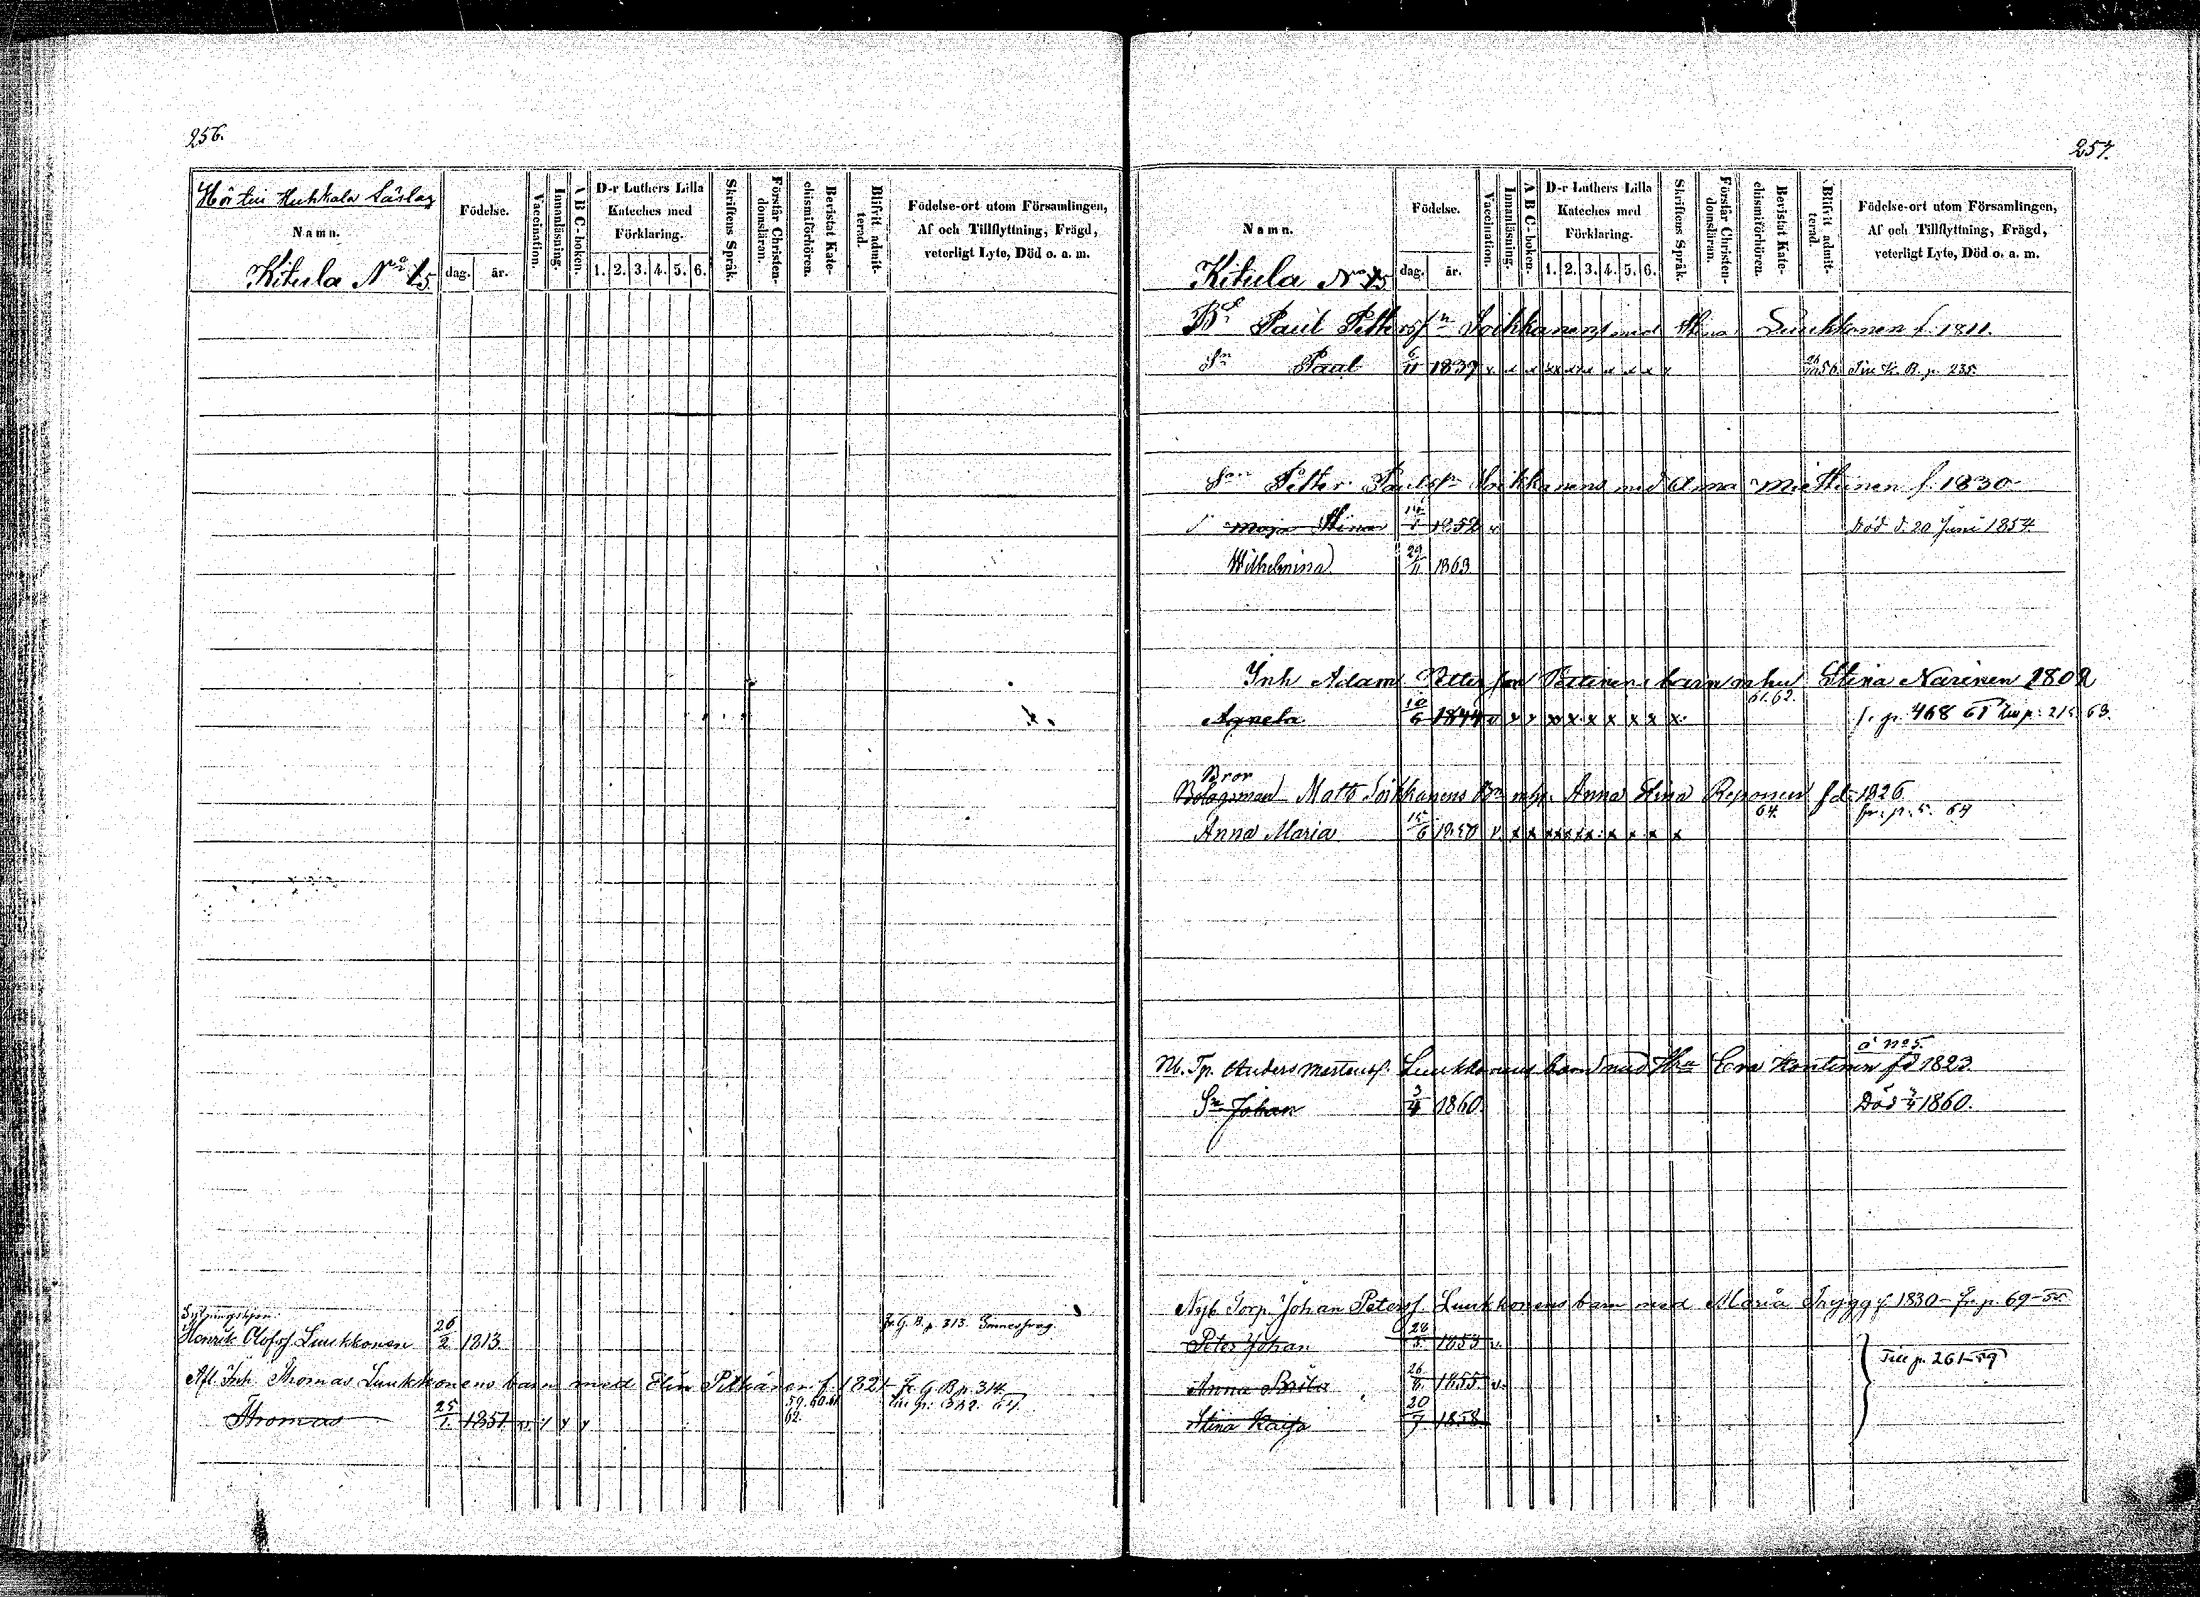 256.
Namn.
Kitula No 15
Födelse.
dag. år.
Vaccination.
Innanläsning.
A B C-boken.
D-r Luthers Lilla
Kateches med
Förklaring.
1. 2. 3. 4. 5. 6.
Skriftens Språk.
Förstår Christen-
domsläran.
Bevistat Kate-
chismiförhören.
Blifvit admit-
terad.
Födelse-ort utom Församlingen,
Af och Tillflyttning, Frägd,
veterligt Lyte, Död o. a. m.
Henrik Olofsf. Luukkonen 26/2 1813 fr. G. B. p. 313. Sinnessvag.
Afl. Inh. Thomas Luukkonens barn med Elin Pitkänen f. 1821 Fr. G. B. p. 314.
Thomas 25/1 1851 v x x x 59. 60. 61 62. till p. 342. 64.
257.
Namn.
Kitula No 15
Födelse.
dag. år.
Vaccination.
Innanläsning.
A B C-boken.
D-r Luthers Lilla
Kateches med
Förklaring.
1. 2. 3. 4. 5. 6.
Skriftens Språk.
Förstår Christen-
domsläran.
Bevistat Kate-
chismiförhören.
Blifvit admit-
terad.
Födelse-ort utom Församlingen,
Af och Tillflyttning, Frägd,
veterligt Lyte, Död o. a. m.
Paul Pettersfn Soikkanens med Stina Luukkonen f. 1811.
Sn Paul 6/11 1839 v x x xx xx x x x x x K. B. p. 235.
Son Petter Paulsfn Soikkanens med Anna Miettinen f. 1830
Maja Stina 14/1 1852 v Död d. 20 Juni 1854.
Wilhelmina 29/11 1863
Inh Adam Pettersson barn mhu Stina Narinen 1802
61. 62.
Agneta 10/6 1844 v x x xx x x x x x x f. p. 468 61 till p. 215 63.
Bror
Bolagsman Matts Soikkanens Bn mh. Anna Stina Reponen fd. 1826
64. fr. p. 5. 64
Anna Maria 15/6 1850 v. x x xx xx x x x x
å No 5.
Nb. Tp. Anders Mårtensf. Luukkonens barn med Hu Eva Kontinen fd 1823.
Sn Johan 3/4 1860 Död 7/4 1860.
Nyb. Torp. Johan Petersf. Luukkonens barn med Maria Trygg f. 1830 Fr. p. 69-55
Peter Johan 28/5 1853 v.
Till p. 261-59
Anna Brita 26/8 1855. v.
Stina Kaisa 20/7 1858.